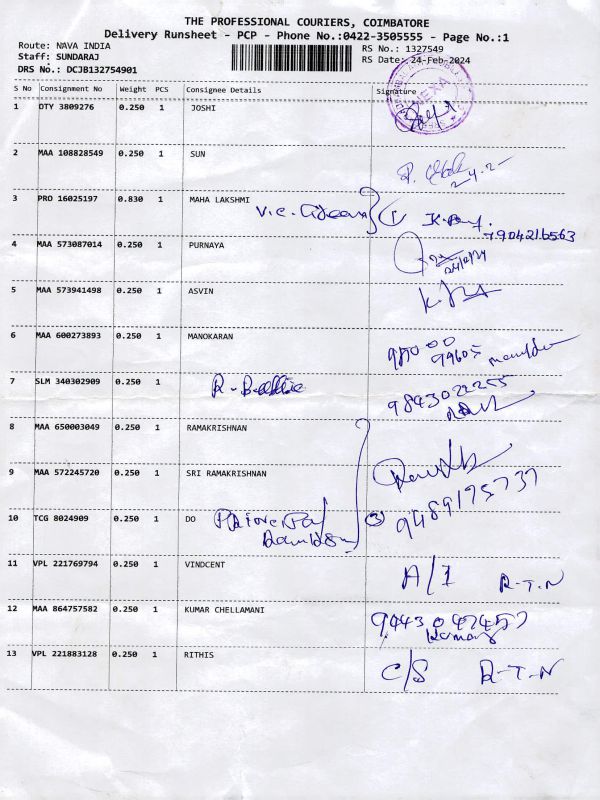 THE PROFESSIONAL COURIERS, COIMBATORE
Delivery Runsheet - PCP - Phone No.:0422-3505555 - Page No.:1
Route: NAVA INDIA
RS No.: 1327549
Staff: SUNDARAJ
RS Date: 24-Feb-2024
DRS No.: DCJB132754901
S No Consignment No Weight PCS Consignee Details Signature
NEXA
1 DTY 3809276 0.250 1 JOSHI
2 MAA 108828549 0.250 1 SUN
3 PRO 16025197 0.830 1 MAHA LAKSHMI
4 MAA 573087014 0.250 1 PURNAYA
5 MAA 573941498 0.250 1 ASVIN
6 MAA 600273893 0.250 1 MANOKARAN
98000
99605
7 SLM 340302909 0.250 1
9843022255
8 MAA 650003049 0.250 1 RAMAKRISHNAN
9 MAA 572245720 0.250 1 SRI RAMAKRISHNAN
10 TCG 8024909 0.250 1 DO
9489175737
11 VPL 221769794 0.250 1 VINDCENT A/I R-T-N
12 MAA 864757582 0.250 1 KUMAR CHELLAMANI
13 VPL 221883128 0.250 1 RITHIS C/S R-T-N